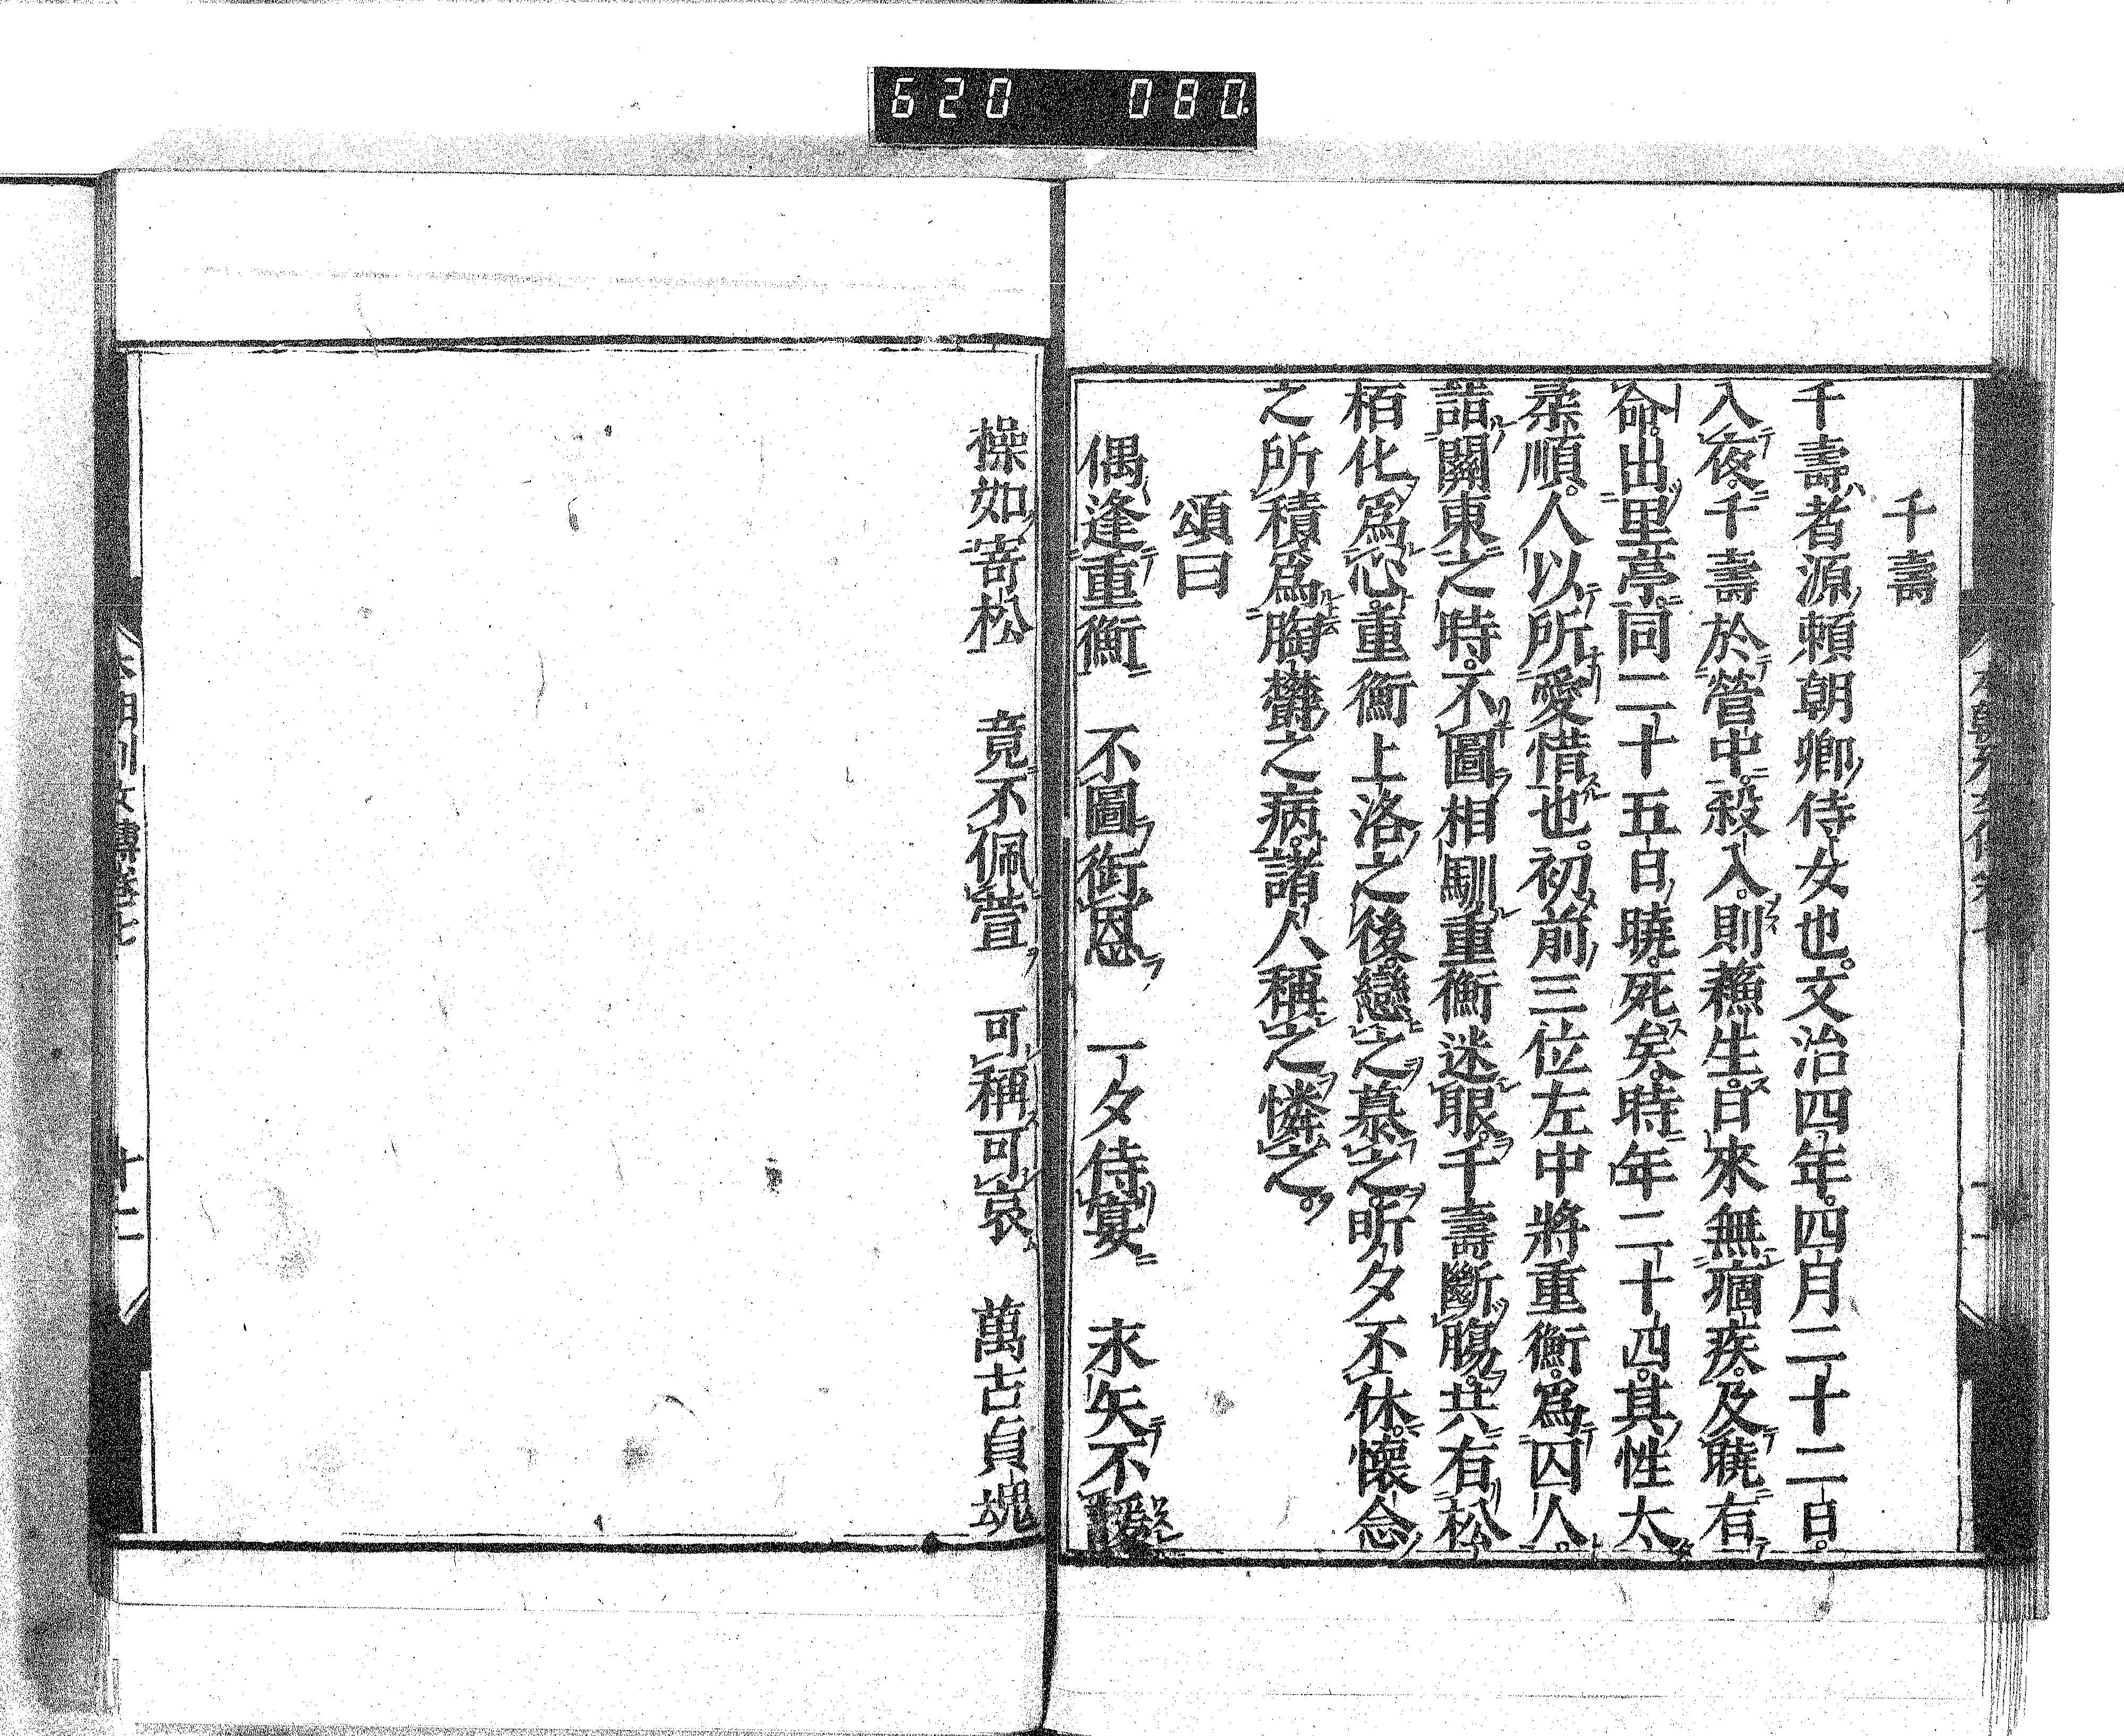 620 080
千壽
千壽者源賴朝卿侍女也。文治四年。四月二十二日。
入夜。千壽於營中。殺入。則穌生。日來無痼疾。及曉有
命。出里亭。同二十五日曉。死矣。時年二十四。其性太
柔順。人以所愛惜也。初前三位左中將重衡。爲囚人。
詣關東之時。不圖相馴重衡迷眼。千壽斷腸。共右松
栢化爲心。重衡上洛之後。戀之慕之。昕夕不休。懷念
之所積爲胸欝之病。諸人稱之憐之。
頌曰
偶逢重衡 不圖銜恩 一夕侍宴 永矢不諼
操如寄松 竟不佩萱 可稱可哀 萬古貞魂
十二